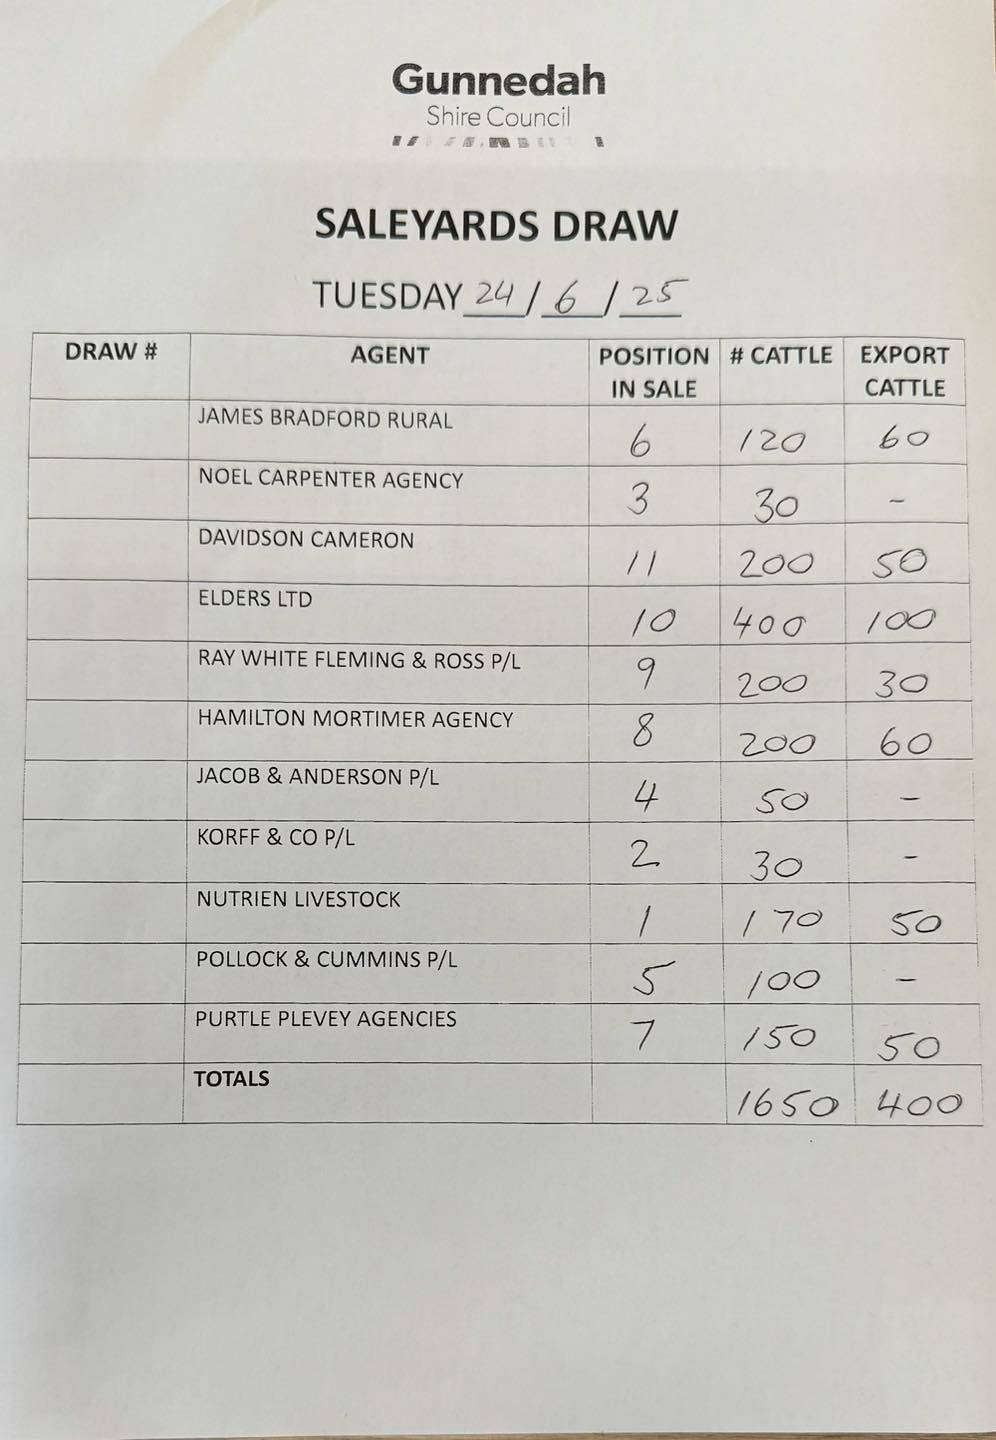 Gunnedah
Shire Council
SALEYARDS DRAW
TUESDAY 24/6/25
DRAW # AGENT POSITION IN SALE # CATTLE EXPORT CATTLE
JAMES BRADFORD RURAL 6 120 60
NOEL CARPENTER AGENCY 3 30 -
DAVIDSON CAMERON 11 200 50
ELDERS LTD 10 400 100
RAY WHITE FLEMING & ROSS P/L 9 200 30
HAMILTON MORTIMER AGENCY 8 200 60
JACOB & ANDERSON P/L 4 50 -
KORFF & CO P/L 2 30 -
NUTRIEN LIVESTOCK 1 170 50
POLLOCK & CUMMINS P/L 5 100 -
PURTLE PLEVEY AGENCIES 7 150 50
TOTALS 1650 400